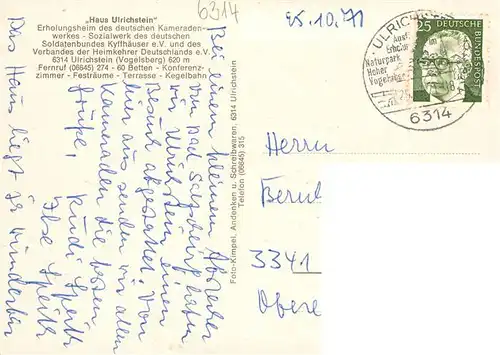 6314
25.10.71
"Haus Ulrichstein"
Erholungsheim des deutschen Kameraden-
werkes - Sozialwerk des deutschen
Soldatenbundes Kyffhäuser e.V. und des
Verbandes der Heimkehrer Deutschlands e.V.
6314 Ulrichstein (Vogelsberg) 620 m
Fernruf (06645) 274 - 60 Betten - Konferenz-
zimmer - Festräume - Terrasse - Kegelbahn
Bei einem kleinem Abstecher
von Bad Salzschlirf haben
wir Ulrichstein einen
Besuch abgestattet. Von
hier aus senden wir allen
Kameraden die besten
Grüße,
Rudi
Ilse
Das Haus liegt ja wunderbar
Foto-Kimpel, Andenken u. Schreibwaren, 6314 Ulrichstein
Telefon (06645) 315
ULRICHS
Naturpark
Hoher
Vogelsberg
6314
25
DEUTSCHE
BUNDESPOST
Herrn
Bernh
3341
Obere